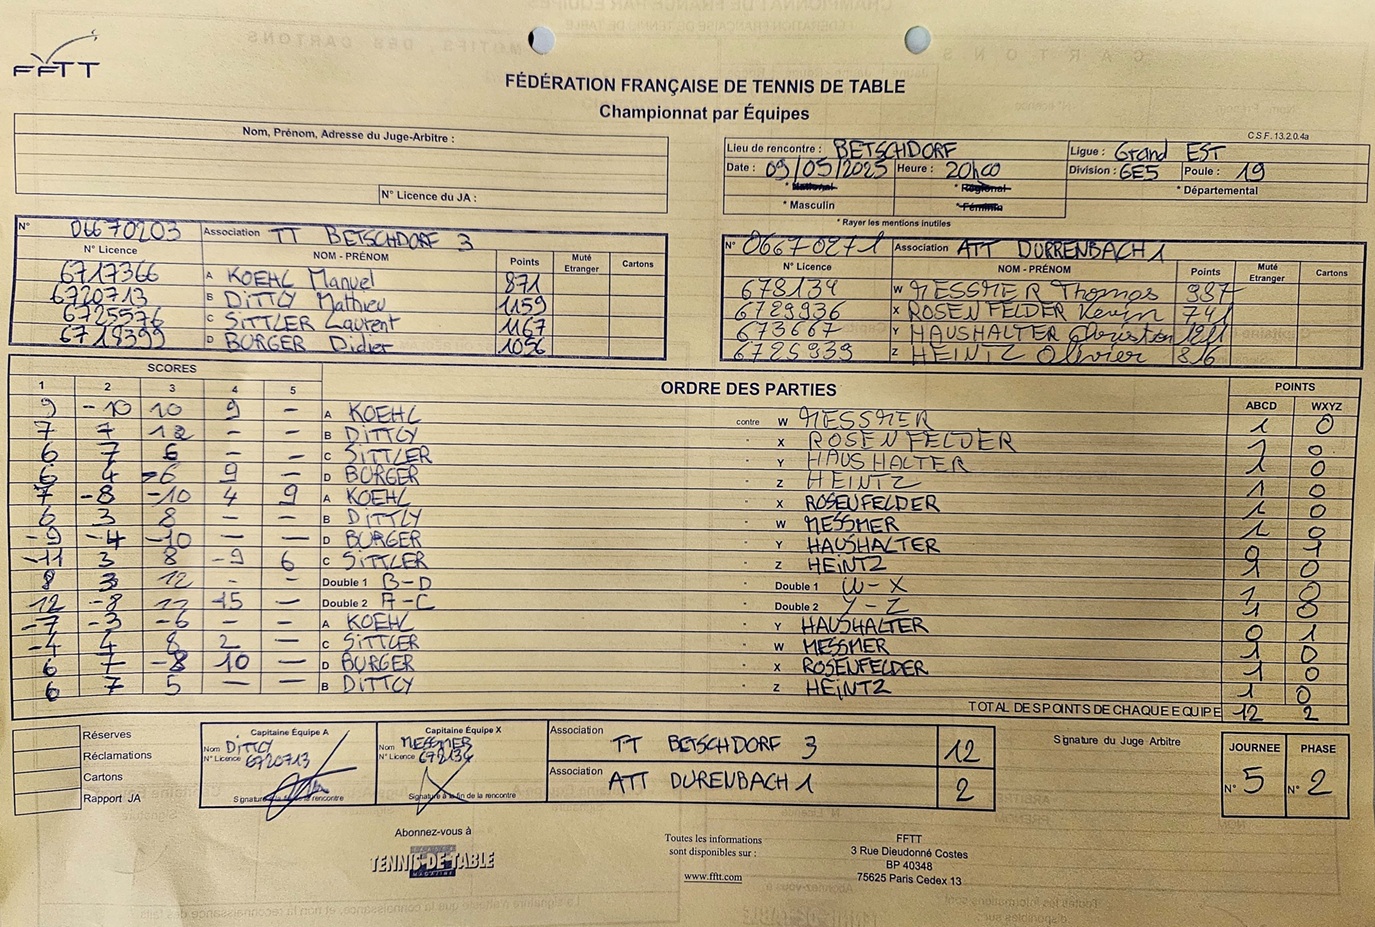 FFTT
FÉDÉRATION FRANÇAISE DE TENNIS DE TABLE
Championnat par Équipes
C.S.F. 13.2.0.4a
Nom, Prénom, Adresse du Juge-Arbitre :
N° Licence du JA :
Lieu de rencontre : BETSCHDORF Ligue : Grand EST
Date : 09/05/2025 Heure : 20h00 Division : GE5 Poule : 19
* National * Régional * Départemental
* Masculin * Féminin
* Rayer les mentions inutiles
N° 06670203 Association TT BETSCHDORF 3
N° Licence NOM - PRÉNOM Points Muté Etranger Cartons
6717366 A KOEHL Manuel 871
6720713 B DITTLY Mathieu 1159
6725576 C SITTLER Laurent 1167
6718399 D BURGER Didier 1056
N° 06670271 Association ATT DURRENBACH 1
N° Licence NOM - PRÉNOM Points Muté Etranger Cartons
678134 W MESSMER Thomas 987
6729936 X ROSENFELDER Kevin 741
673667 Y HAUSHALTER Christian
6725939 Z HEINTZ Olivier 816
SCORES ORDRE DES PARTIES POINTS
1 2 3 4 5 ABCD WXYZ
9 -10 10 9 - A KOEHL contre W MESSMER 1 0
7 7 12 - - B DITTLY " X ROSENFELDER 1 0
6 7 6 - - C SITTLER " Y HAUSHALTER 1 0
6 4 -6 9 - D BURGER " Z HEINTZ 1 0
7 -8 -10 4 9 A KOEHL " X ROSENFELDER 1 0
6 3 8 - - B DITTLY " W MESSMER 1 0
-9 -4 -10 - - D BURGER " Y HAUSHALTER 0 1
-11 3 8 -9 6 C SITTLER " Z HEINTZ 1 0
8 3 12 - - Double 1 B-D " Double 1 W-X 1 0
12 -8 15 - Double 2 A-C " Double 2 Y-Z 1 0
-7 -3 -6 - - A KOEHL " Y HAUSHALTER 0 1
-4 4 8 2 - C SITTLER " W MESSMER 1 0
6 7 -8 10 - D BURGER " X ROSENFELDER 1 0
6 7 5 - - B DITTLY " Z HEINTZ 1 0
TOTAL DES POINTS DE CHAQUE EQUIPE 12 2
Réserves
Réclamations
Cartons
Rapport JA
Capitaine Équipe A
Nom DITTLY
N° Licence 6720713
Signature à la fin de la rencontre
Capitaine Équipe X
Nom MESSMER
N° Licence 678134
Signature à la fin de la rencontre
Association TT BETSCHDORF 3 12
Association ATT DURENBACH 1 2
Signature du Juge Arbitre
JOURNEE PHASE
N° 5 N° 2
Abonnez-vous à
TENNIS DE TABLE
MAGAZINE
Toutes les informations
sont disponibles sur :
www.fftt.com
FFTT
3 Rue Dieudonné Costes
BP 40348
75625 Paris Cedex 13